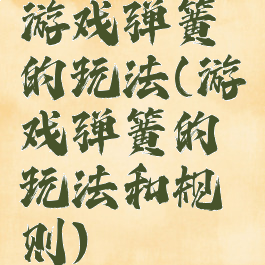 游戏弹簧
的玩法(游
戏弹簧的
玩法和规
则)